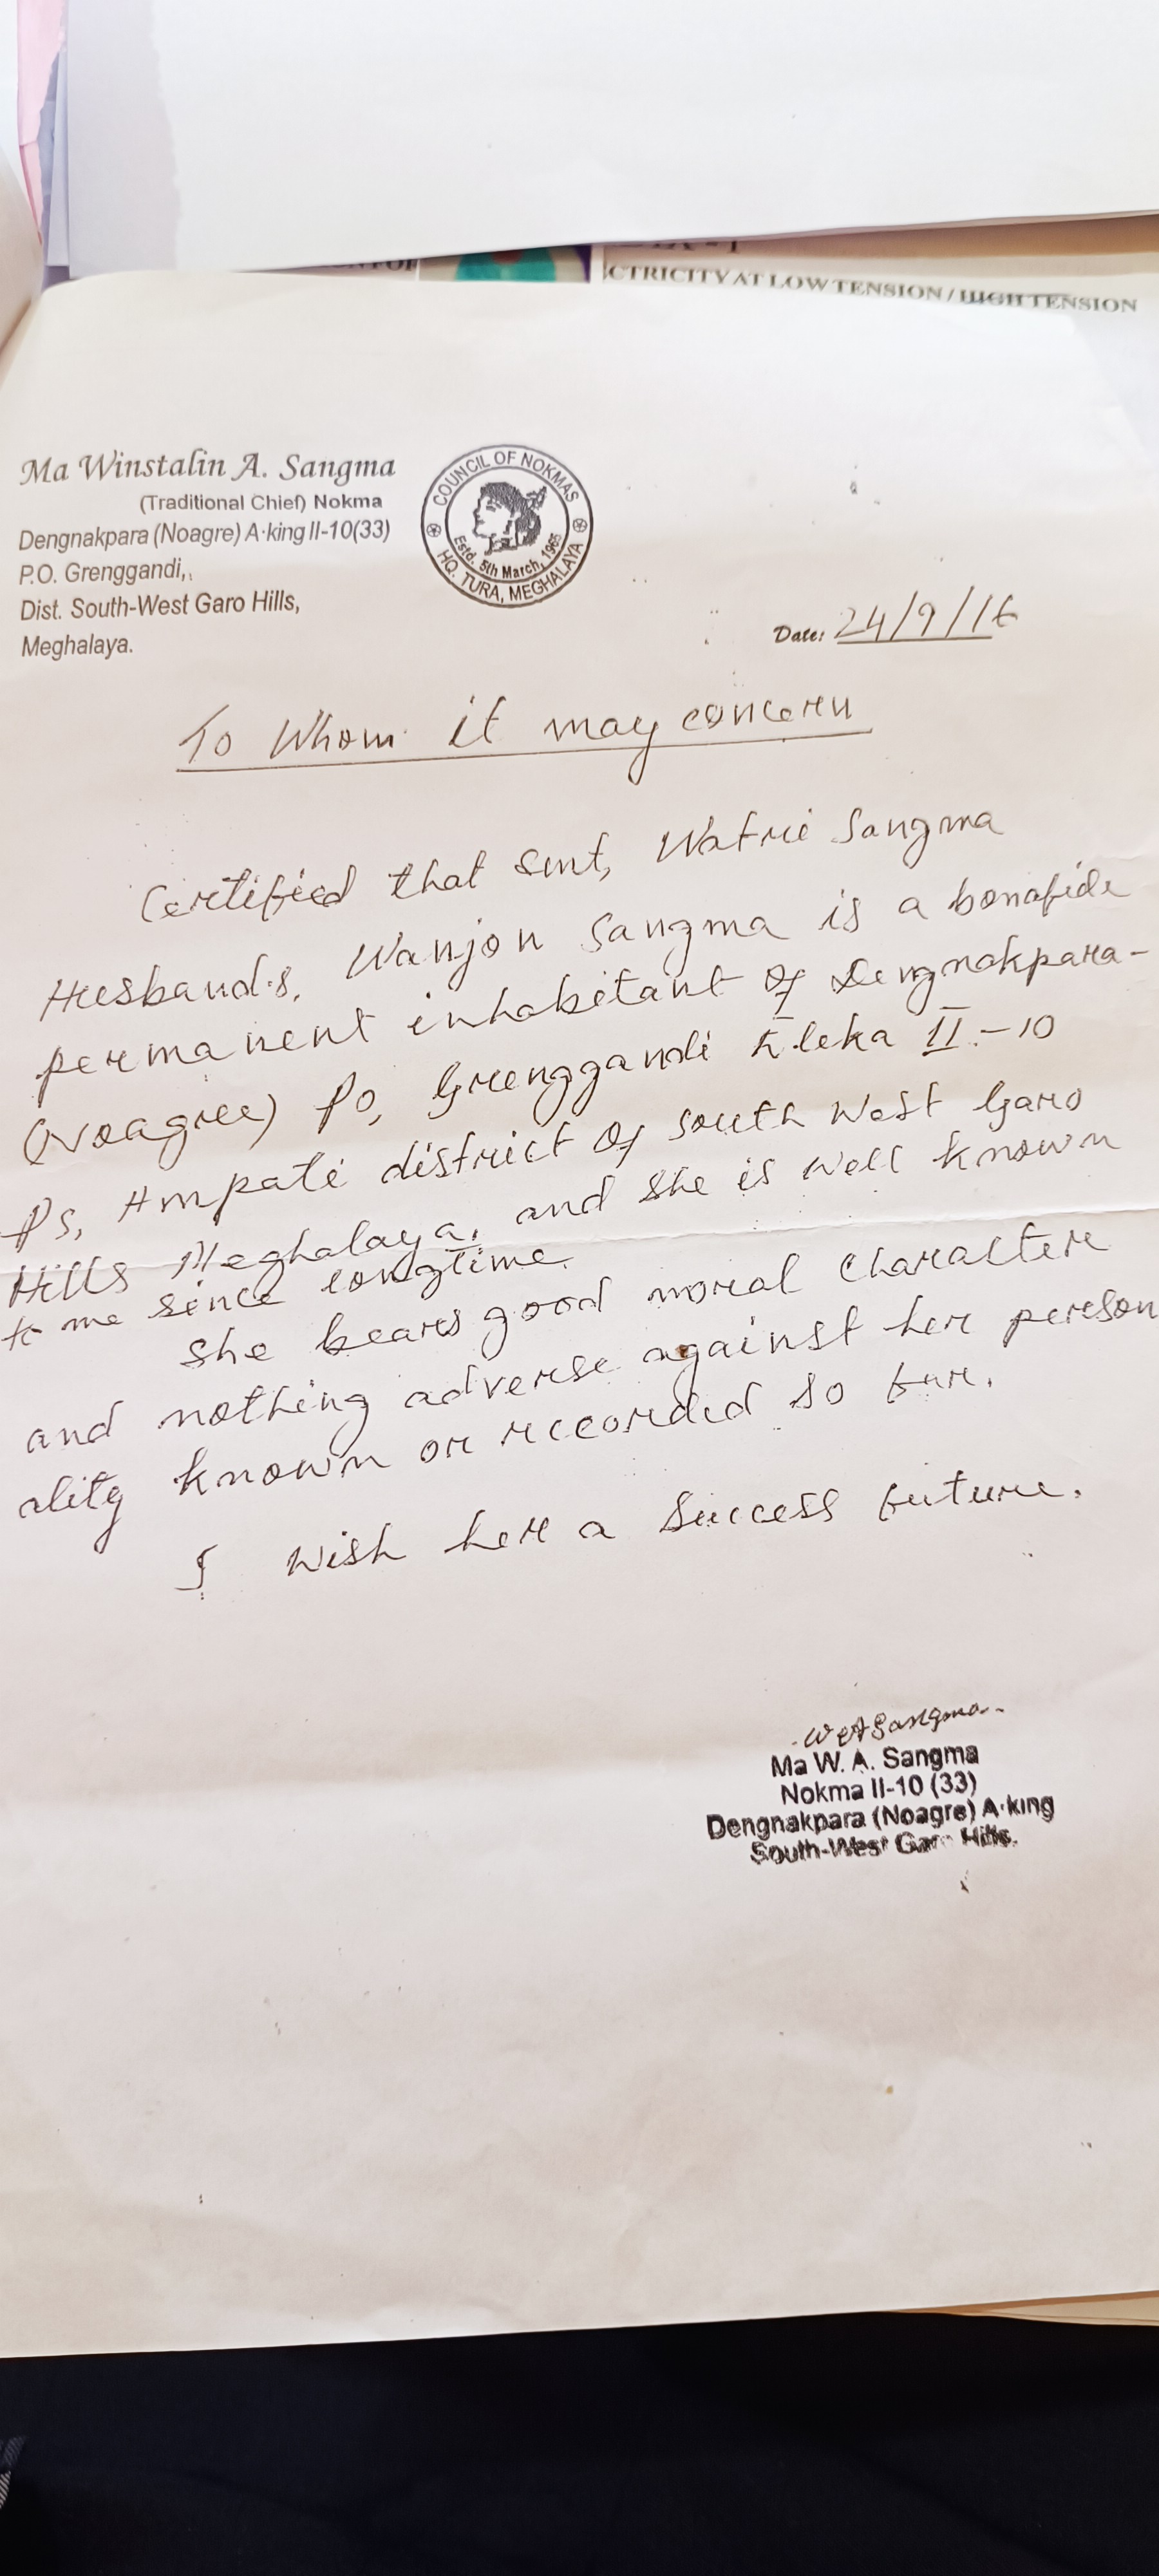 CTRICITY AT LOW TENSION / HIGH TENSION
Ma Winstalin A. Sangma
(Traditional Chief) Nokma
Dengnakpara (Noagre) A·king II-10(33)
P.O. Grenggandi,
Dist. South-West Garo Hills,
Meghalaya.
COUNCIL OF NOKMAS
Estd. 5th March, 1965
HQ. TURA, MEGHALAYA
Date: 24/9/16
To Whom it may concern
Certified that Smt, Watrie Sangma
Husband.s. Wanjon Sangma is a bonafide
permanent inhabitant of Dengnakpara-
(Noagree) Po, Grenggandi Eleka II-10
Ps, Ampati district of south West Garo
Hills Meghalaya. and she is well known
to me since longtime.
She bears good moral character
and nothing adverse against her person
ality known or recorded so far.
I wish her a success future.
W A Sangma
Ma W. A. Sangma
Nokma II-10 (33)
Dengnakpara (Noagre) A·king
South-West Garo Hills.